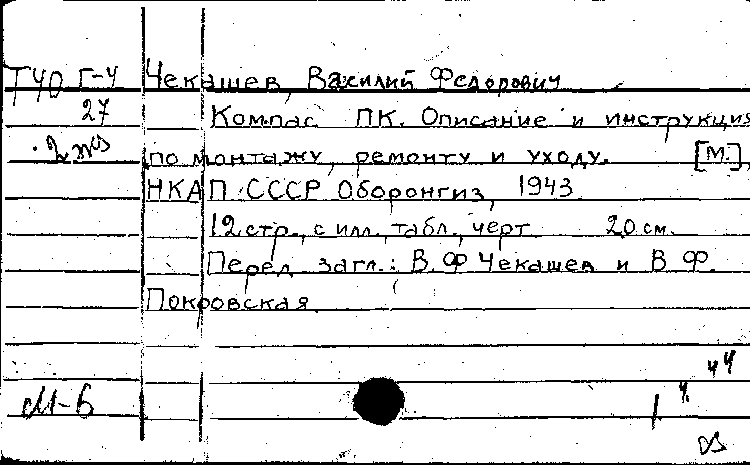 Т40 Г-4 Чекашев, Василий Федорович
27 Компас ПК. Описание и инструкция
2 экз по монтажу, ремонту и уходу. [М.],
НКАП СССР Оборонгиз, 1943
12 стр., с илл., табл., черт 20 см.
Перед загл.: В. Ф Чекашев и В Ф.
Покровская
М-Б